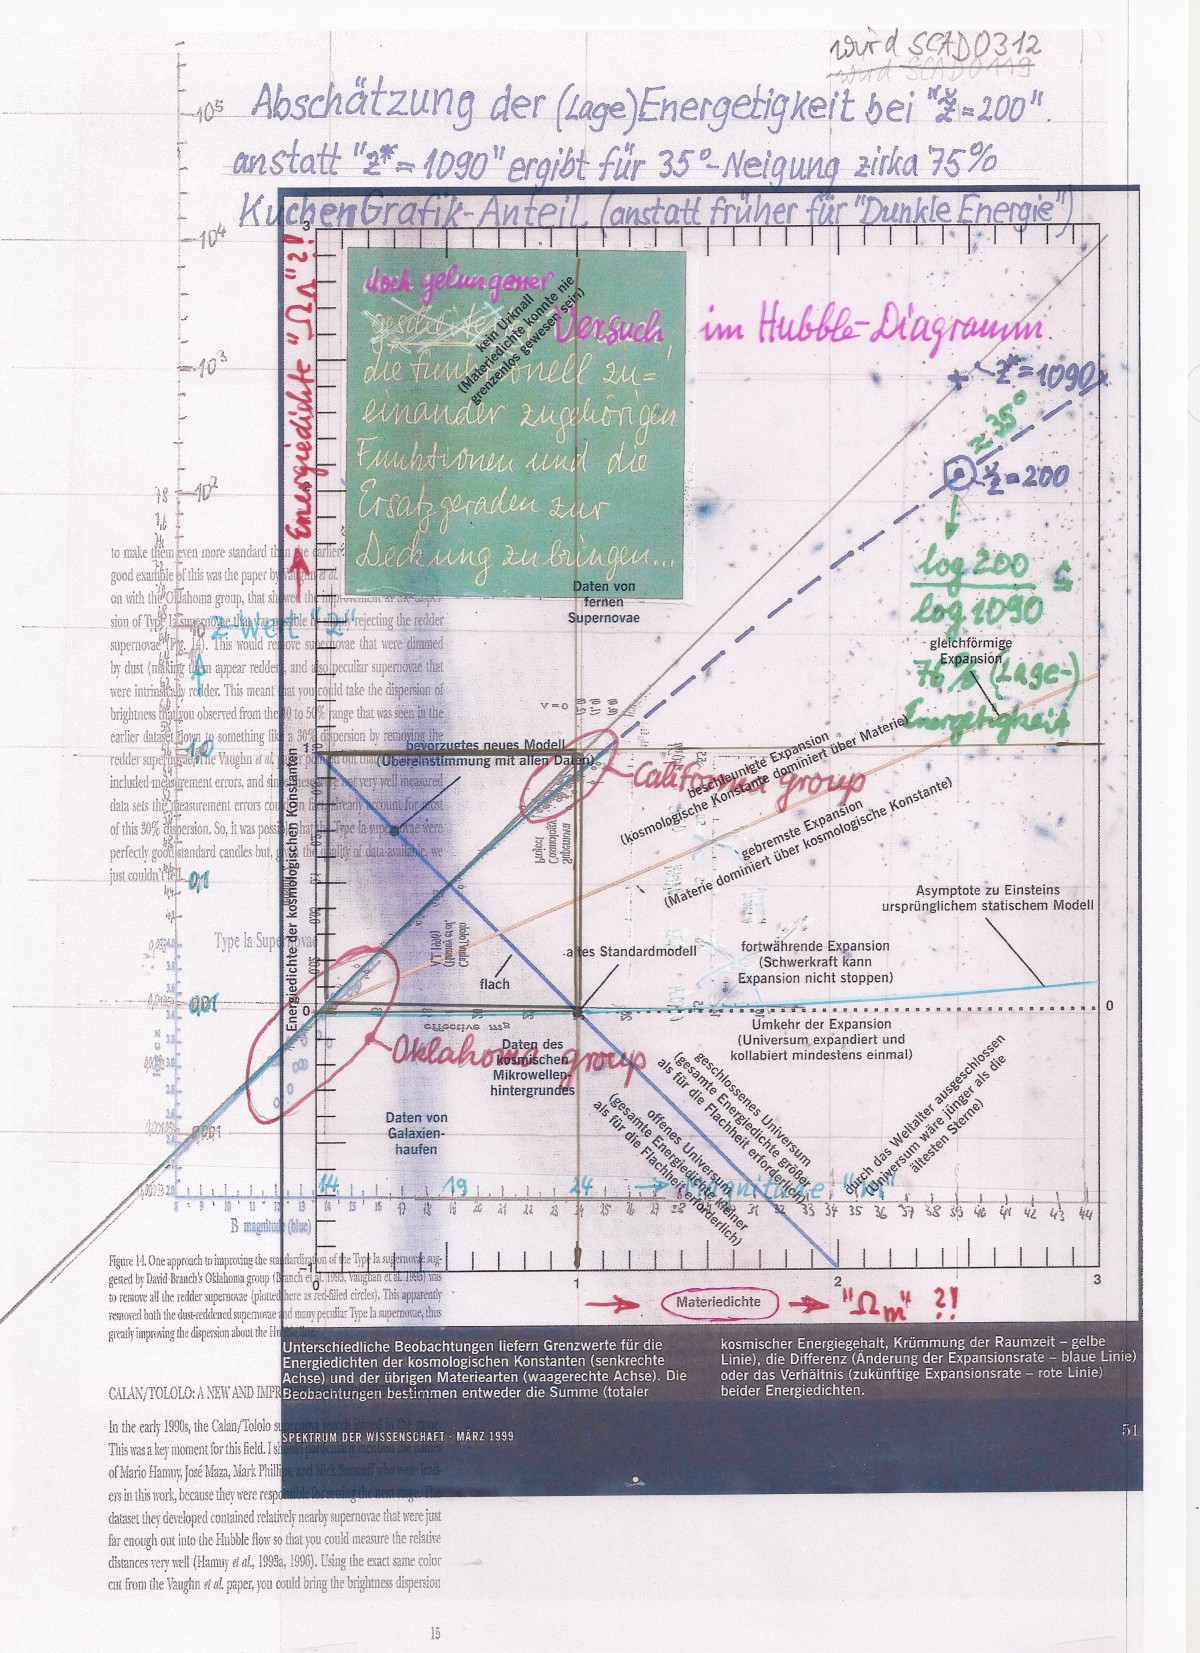 wird SCAD0312
wird SCAD0119
Abschätzung der (Lage)Energetigkeit bei "ž=200".
anstatt "z*=1090" ergibt für 35°-Neigung zirka 75%
KuchenGrafik-Anteil (anstatt früher für "Dunkle Energie")
10⁵
10⁴
10³
10²
10
1,0
0,1
0,01
0,001
→ Energiedichte "ΩΛ"?!
Energiedichte der kosmologischen Konstanten
3
1
0
-1
doch gelungener
Versuch im Hubble-Diagramm
die funktionell zu=
einander zugehörigen
Funktionen und die
Ersatzgeraden zur
Deckung zu bringen...
kein Urknall
(Materiedichte konnte nie
grenzenlos gewesen sein)
z*=1090
≈35°
ž=200
log 200
log 1090
76% (Lage-)
Energetigkeit
Daten von
fernen
Supernovae
gleichförmige
Expansion
z-Wert "z"
v=0
bevorzugtes neues Modell
(Übereinstimmung mit allen Daten)
California group
beschleunigte Expansion
(kosmologische Konstante dominiert über Materie)
gebremste Expansion
(Materie dominiert über kosmologische Konstante)
Asymptote zu Einsteins
ursprünglichem statischem Modell
altes Standardmodell
flach
fortwährende Expansion
(Schwerkraft kann
Expansion nicht stoppen)
0
effective mB
Umkehr der Expansion
(Universum expandiert und
kollabiert mindestens einmal)
Oklahoma group
Daten des
kosmischen
Mikrowellen-
hintergrundes
Daten von
Galaxien-
haufen
geschlossenes Universum
(gesamte Energiedichte größer
als für die Flachheit erforderlich)
offenes Universum
(gesamte Energiedichte kleiner
als für die Flachheit erforderlich)
durch das Weltalter ausgeschlossen
(Universum wäre jünger als die
ältesten Sterne)
14 19 24 → Magnitude "m"
34 35 36 37 38 39 40 41 42 43 44
B magnitude (blue)
0 1 2 3
→ Materiedichte → "Ωm" ?!
to make them even more standard than the earlier
good example of this was the paper by Vaughn et al.
on with the Oklahoma group, that showed the improvement as the disper-
sion of Type Ia supernovae that was possible by rejecting the redder
supernovae (Fig. 14). This would remove supernovae that were dimmed
by dust (making them appear redder) and also peculiar supernovae that
were intrinsically redder. This meant that you could take the dispersion of
brightness that you observed from the 40 to 50% range that was seen in the
earlier dataset down to something like a 30% dispersion by removing the
redder supernovae.
included measurement errors, and since these were not very well measured
data sets the measurement errors could in fact already account for most
of this 30% dispersion. So, it was possible that the Type Ia supernovae were
perfectly good standard candles but, given the quality of data available, we
just couldn't tell.
Type Ia Supernovae
Figure 14. One approach to improving the standardization of the Type Ia supernovae sug-
gested by David Branch's Oklahoma group (Branch et al. 1993, Vaughan et al. 1995) was
to remove all the redder supernovae (plotted here as red-filled circles). This apparently
removed both the dust-reddened supernovae and many peculiar Type Ia supernovae, thus
greatly improving the dispersion about the Hubble line.
Unterschiedliche Beobachtungen liefern Grenzwerte für die
Energiedichten der kosmologischen Konstanten (senkrechte
Achse) und der übrigen Materiearten (waagerechte Achse). Die
Beobachtungen bestimmen entweder die Summe (totaler
kosmischer Energiegehalt, Krümmung der Raumzeit – gelbe
Linie), die Differenz (Änderung der Expansionsrate – blaue Linie)
oder das Verhältnis (zukünftige Expansionsrate – rote Linie)
beider Energiedichten.
SPEKTRUM DER WISSENSCHAFT · MÄRZ 1999
51
CALAN/TOLOLO: A NEW AND IMPR
In the early 1990s, the Calan/Tololo supernova search joined in the game.
This was a key moment for this field. I should particularly mention the names
of Mario Hamuy, José Maza, Mark Phillips, and Nick Suntzeff who were lead-
ers in this work, because they were responsible for setting the next stage. The
dataset they developed contained relatively nearby supernovae that were just
far enough out into the Hubble flow so that you could measure the relative
distances very well (Hamuy et al., 1993a, 1996). Using the exact same color
cut from the Vaughn et al. paper, you could bring the brightness dispersion
15